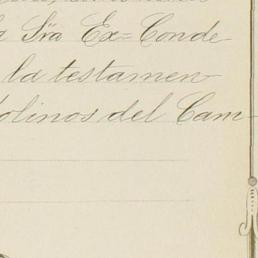 a Sra Ex= Conde
la testamen
olinos del Cam-